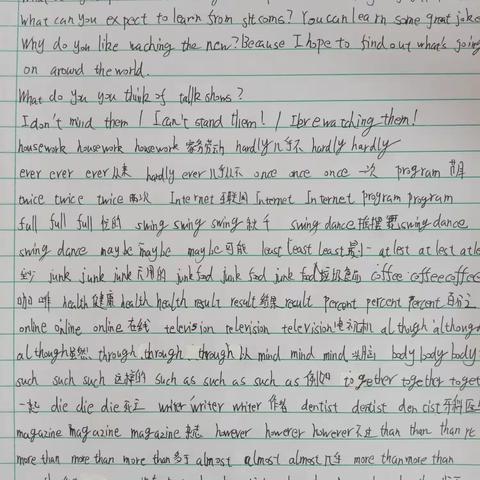 what can you expect to learn from sitcoms? You can learn some great joke
Why do you like waching the new? Because I hope to find out what's going
on around the world.
What do you you think of talk shows?
I don't mind them / I can't stand them! / I watching them!
housework housework housework 家务劳动 hardly 几乎不 hardly hardly
ever ever ever 从来 hardly ever 几乎从不 once once once 一次 program 节目
twice twice twice 两次 Internet 互联网 Internet Internet program program
full full full 忙的 swing swing swing 秋千 swing dance 摇摆舞 swing dance
swing dance maybe maybe maybe 可能 least least least 最小 at lest at lest at le
至少 junk junk junk 无用的 junk food junk food junk food 垃圾食品 coffee coffee coffee
咖啡 health 健康 health health result result 结果 result percent percent percent 百分之
online online online 在线 television television television 电视机 although although
although 虽然 through through through 以 mind mind mind 头脑 body body body
such such such 这样的 such as such as such as 例如 together together toget
一起 die die die 死亡 writer writer writer 作者 dentist dentist dencist 牙科医
magazine magazine magazine 杂志 however however however 不过 than than than 比
more than more than more than 多于 almost almost almost 几乎 more than more than